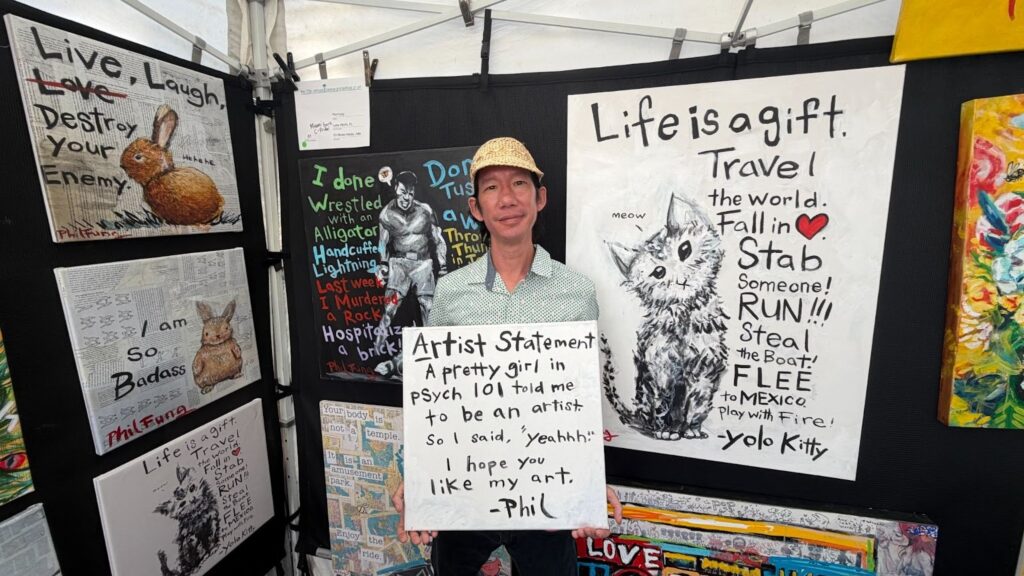 Live, Laugh,
Love
Destroy
Your
Enemy.
HeHeHe
Phil Fung
I am
So
Badass
Phil Fung
Life is a gift.
Travel
the world.
Fall in
Stab
Someone!
RUN!!!
Steal
the Boat!
FLEE
to MEXICO
-yolo Kitty
I done
Wrestled
with an
Alligator
Handcuffed
Lightning
Last week
I Murdered
a Rock
Hospitalized
a brick!
Phil Fung
Your body is
not a temple.
It is an
amusement
park.
Enjoy the
ride.
Artist Statement
A pretty girl in
PSych 101 told me
to be an artist.
So I said, "yeahhh."
I hope you
like my art.
-Phil
Life is a gift.
Travel
the world.
Fall in
Stab
Someone!
RUN!!!
Steal
the Boat!
FLEE
to MEXICO
Play with Fire!
-yolo Kitty
meow
LOVE